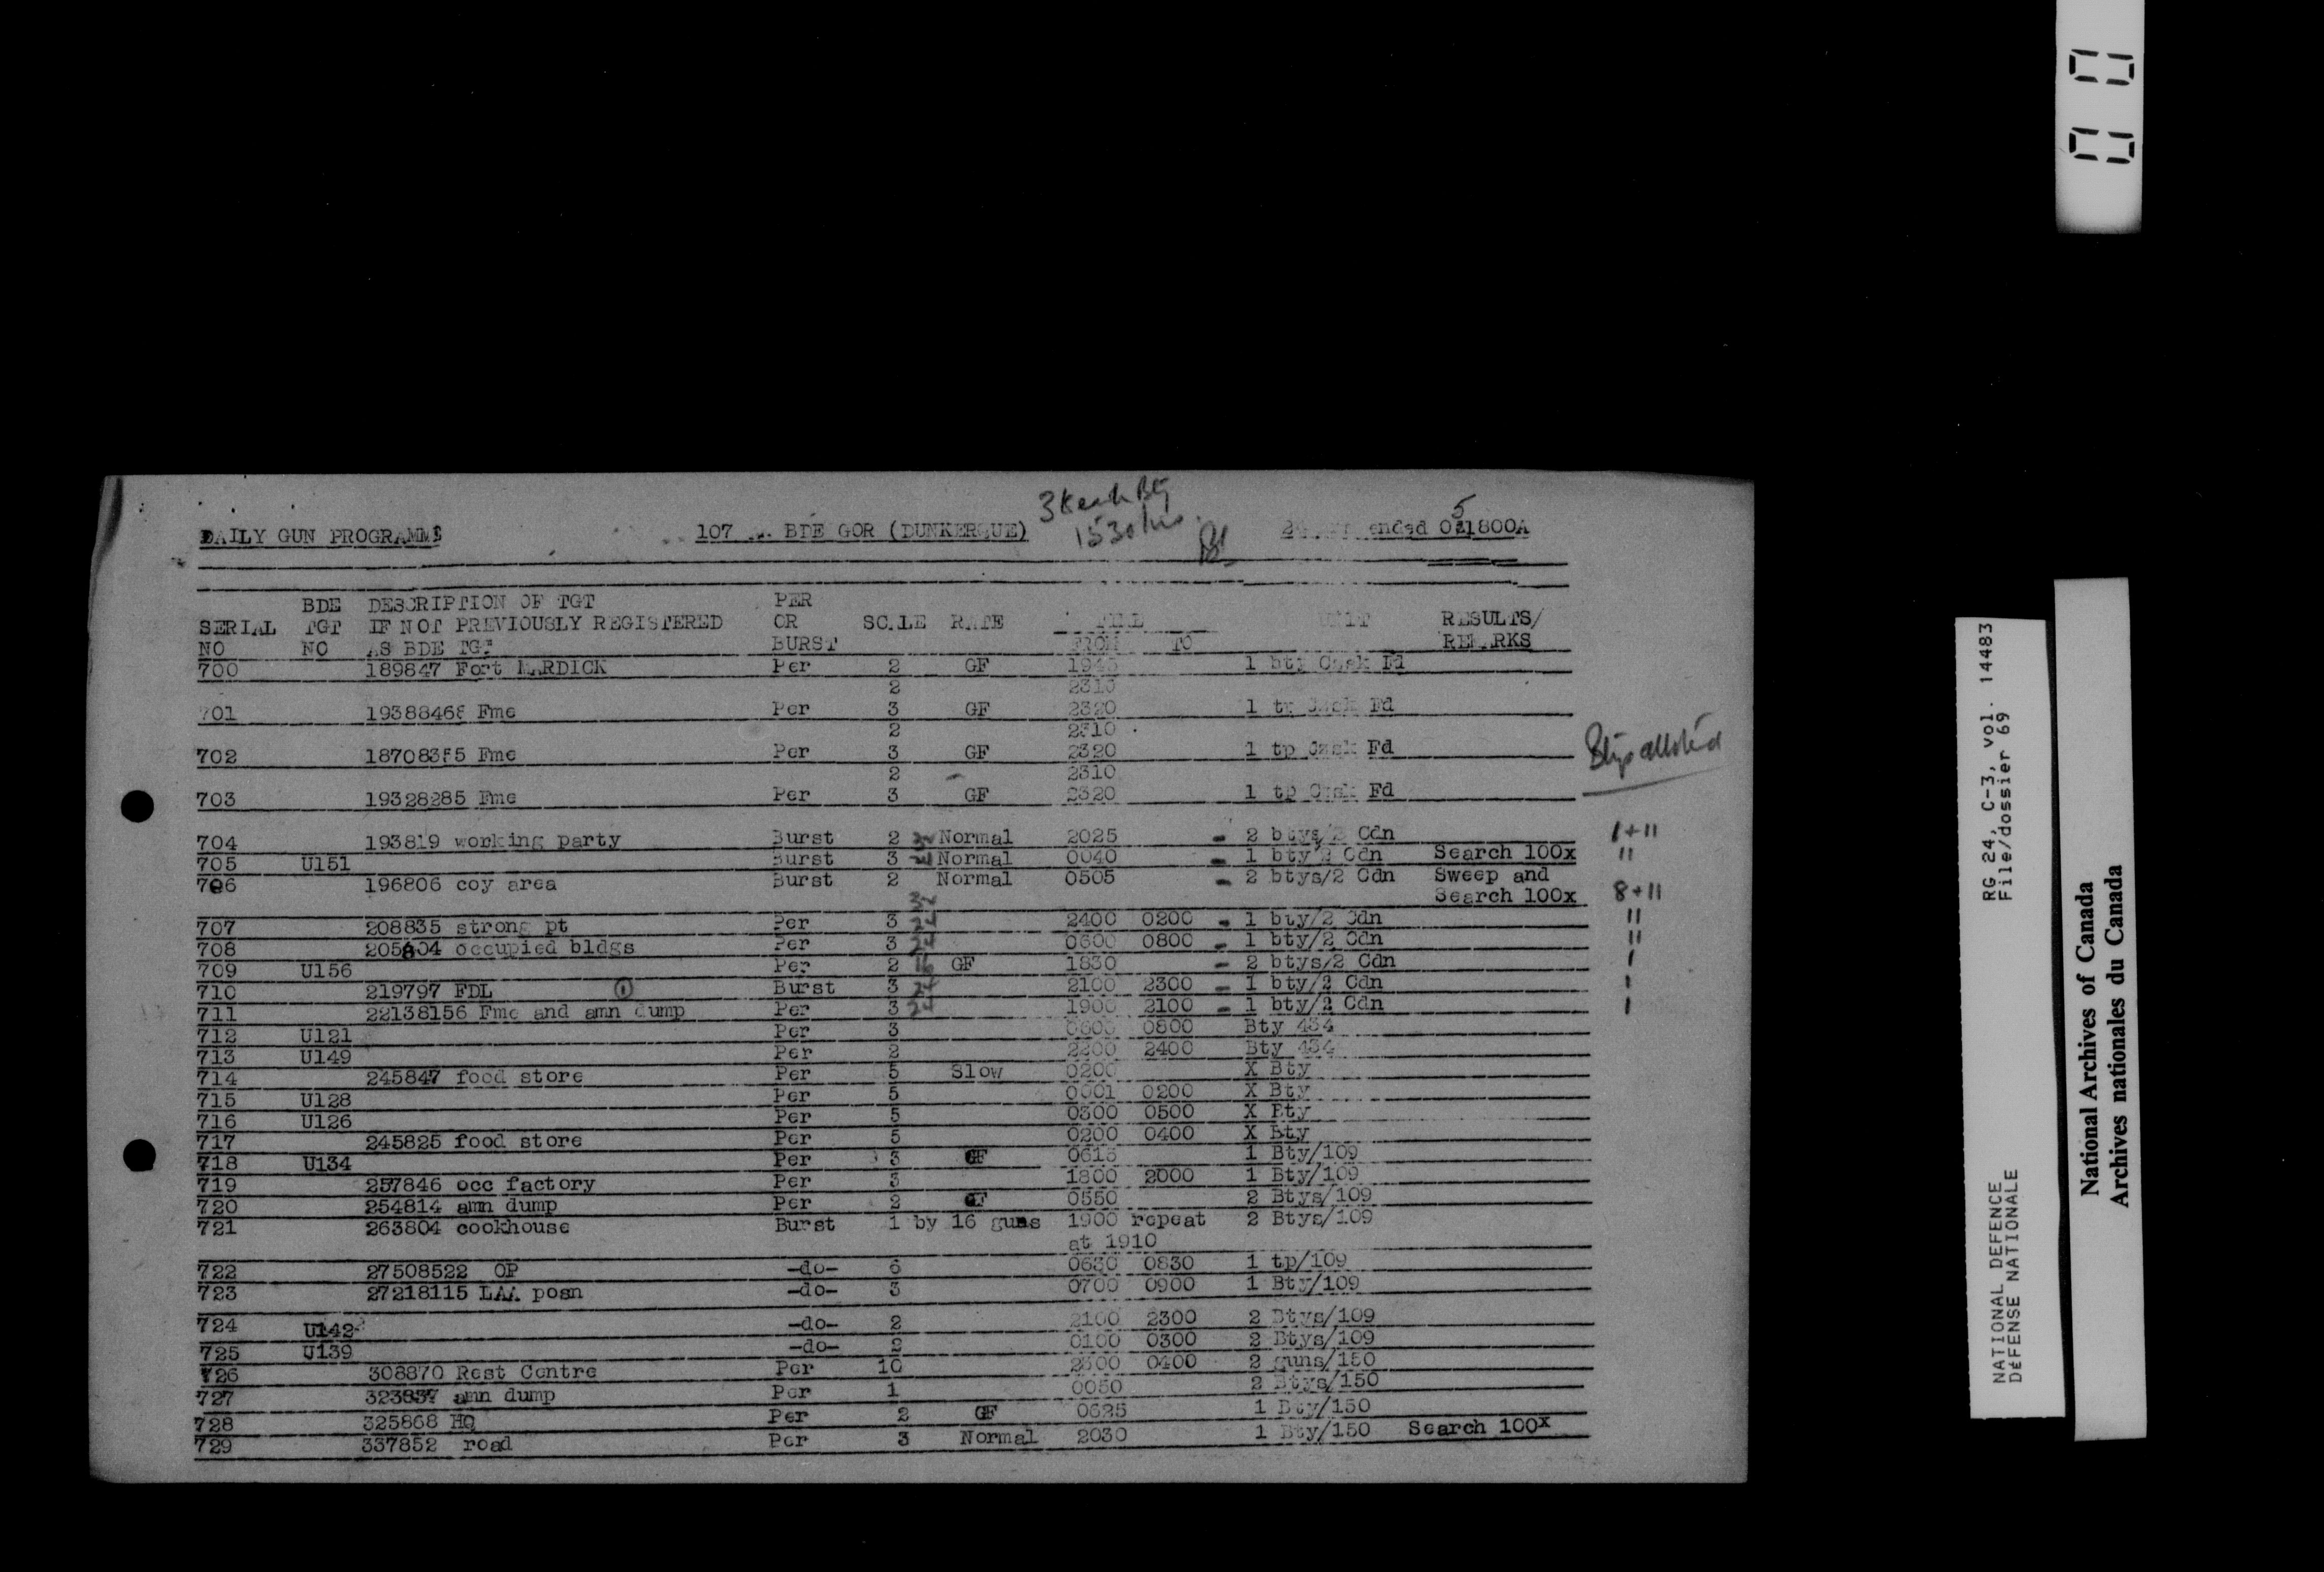 DAILY GUN PROGRAMME 107 BDE GOR (DUNKERQUE) ended 051800A
1530 hrs.
BDE DESCRIPTION OF TGT PER
SERIAL TGT IF NOT PREVIOUSLY REGISTERED OR SCALE RATE TIME UNIT RESULTS/
NO NO AS BDE TGT BURST FROM TO REMARKS
700 189847 Fort MARDICK Per 2 GF 1945 1 bty Czsk Fd
2 2310
701 19388468 Fme Per 3 GF 2320 1 tp Czsk Fd
2 2310
702 18708355 Fme Per 3 GF 2320 1 tp Czsk Fd
2 2310
703 19328285 Fme Per 3 GF 2320 1 tp Czsk Fd
704 193819 working party Burst 2 Normal 2025 - 2 btys/2 Cdn 1+11
705 U151 Burst 3 Normal 0040 - 1 bty/2 Cdn Search 100x 11
706 196806 coy area Burst 2 Normal 0505 - 2 btys/2 Cdn Sweep and
32 Search 100x 8+11
707 208835 strong pt Per 3 24 2400 0200 - 1 bty/2 Cdn 11
708 205804 occupied bldgs Per 3 24 0600 0800 - 1 bty/2 Cdn 11
709 U156 Per 2 16 GF 1830 - 2 btys/2 Cdn 1
710 219797 FDL 1 Burst 3 24 2100 2300 - 1 bty/2 Cdn 1
711 22138156 Fme and amn dump Per 3 24 1900 2100 - 1 bty/2 Cdn 1
712 U121 Per 3 0600 0800 Bty 434
713 U149 Per 2 2200 2400 Bty 434
714 245847 food store Per 5 Slow 0200 X Bty
715 U128 Per 5 0001 0200 X Bty
716 U126 Per 5 0300 0500 X Bty
717 245825 food store Per 5 0200 0400 X Bty
718 U134 Per 3 GF 0615 1 Bty/109
719 257846 occ factory Per 3 1800 2000 1 Bty/109
720 254814 amn dump Per 2 GF 0550 2 Btys/109
721 263804 cookhouse Burst 1 by 16 guns 1900 repeat 2 Btys/109
at 1910
722 27508522 OP -do- 6 0630 0830 1 tp/109
723 27218115 LAA posn -do- 3 0700 0900 1 Bty/109
724 U142 -do- 2 2100 2300 2 Btys/109
725 U139 -do- 2 0100 0300 2 Btys/109
726 308870 Rest Centre Per 10 2300 0400 2 guns/150
727 323837 amn dump Per 1 0050 2 Btys/150
728 325868 HQ Per 2 GF 0625 1 Bty/150
729 337852 road Per 3 Normal 2030 1 Bty/150 Search 100x
RG 24, C-3, vol. 14483
File/dossier 69
NATIONAL DEFENCE
DÉFENSE NATIONALE
National Archives of Canada
Archives nationales du Canada